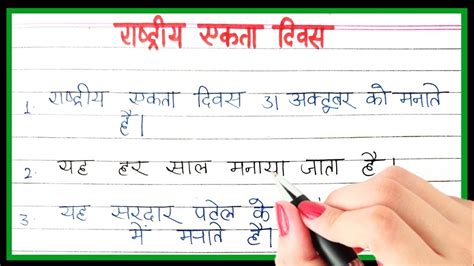 राष्ट्रीय एकता दिवस
1. राष्ट्रीय एकता दिवस 31 अक्टूबर को मनाते
है।
2. यह हर साल मनाया जाता है।
3. यह सरदार पटेल के
में मनाते है।